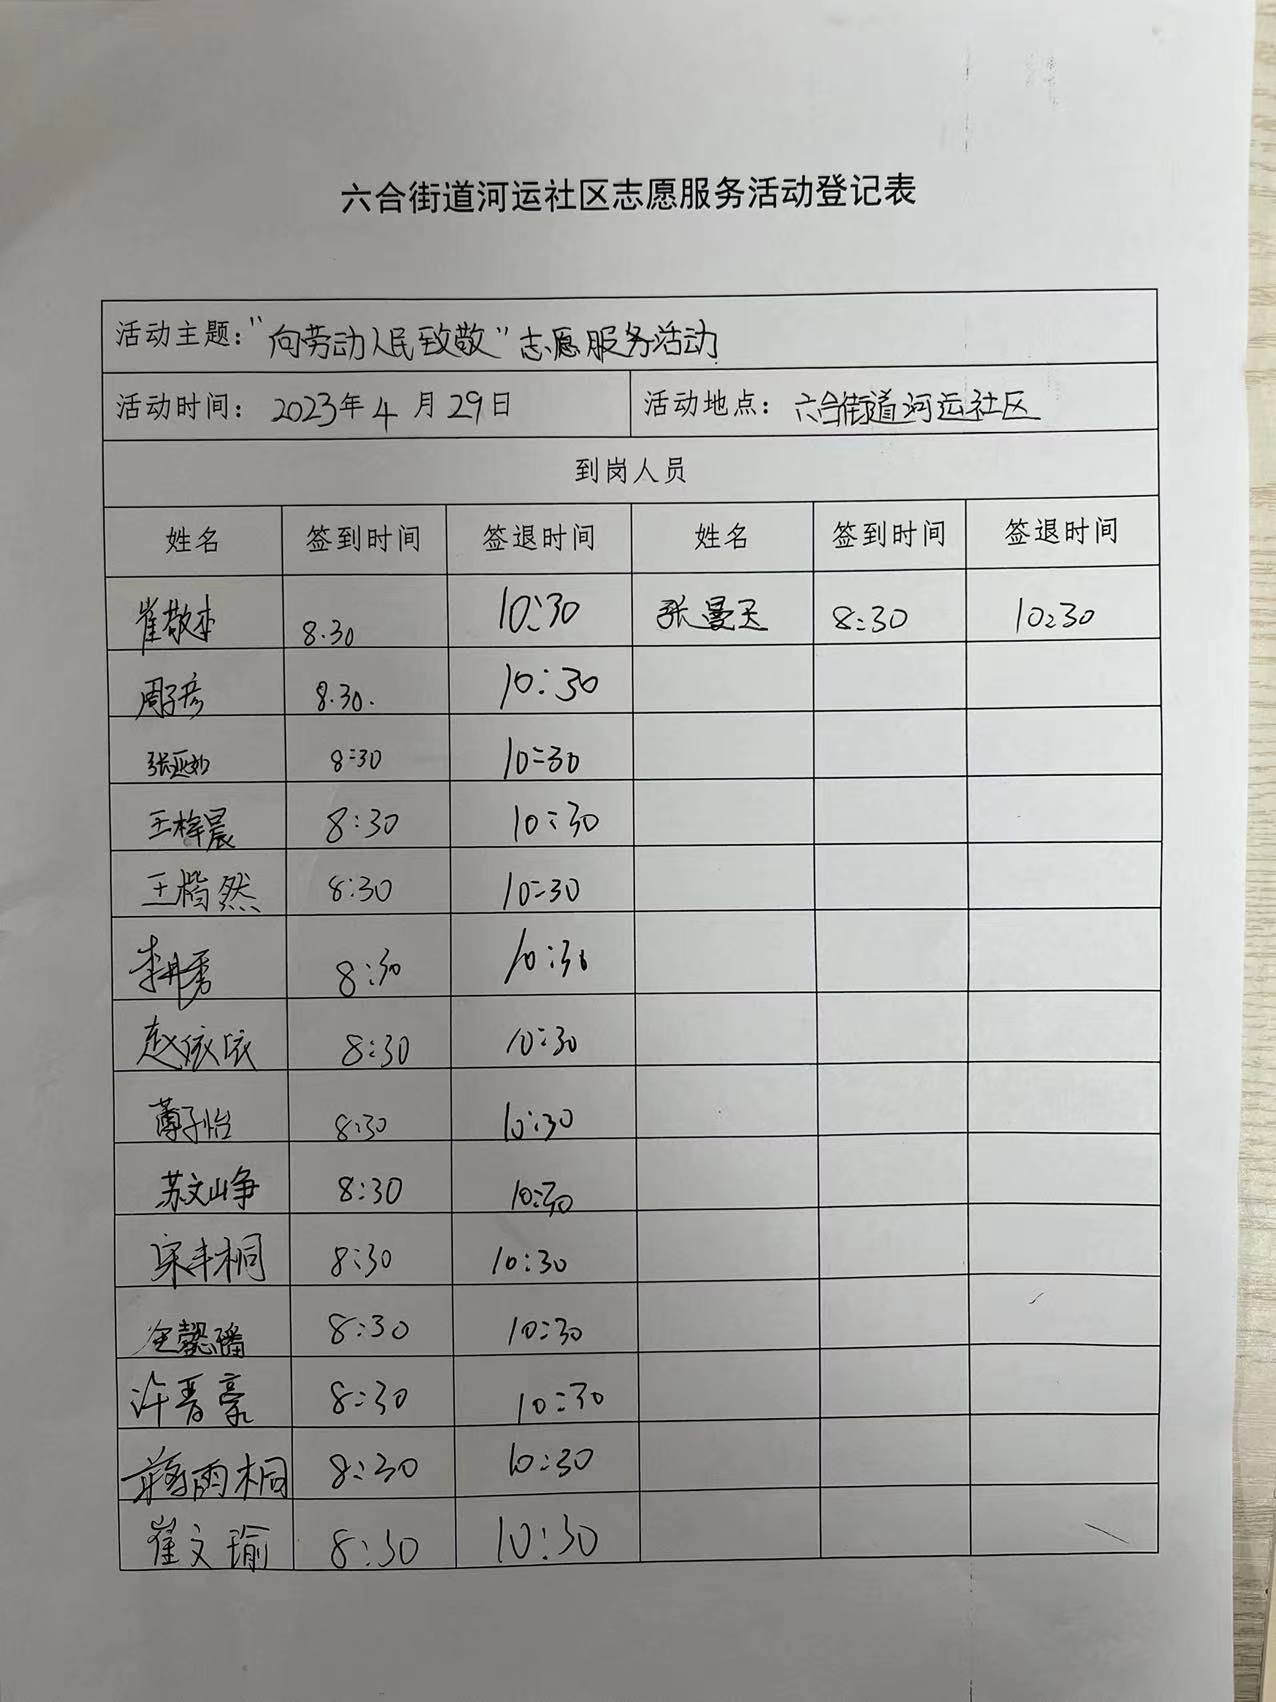 六合街道河运社区志愿服务活动登记表
活动主题："向劳动人民致敬"志愿服务活动
活动时间：2023年4月29日 活动地点：六合街道河运社区
到岗人员
姓名 签到时间 签退时间 姓名 签到时间 签退时间
崔敬 8.30 10:30 张曼 8:30 10:30
周子彦 8.30. 10:30
张亚妙 8:30 10:30
王梓晨 8:30 10:30
王楷然 8:30 10:30
李丹秀 8:30 10:30
赵依依 8:30 10:30
薄子怡 8:30 10:30
苏文峥 8:30 10:30
宋丰桐 8:30 10:30
仝懿璠 8:30 10:30
许晋豪 8:30 10:30
蒋雨桐 8:30 10:30
崔文瑜 8:30 10:30